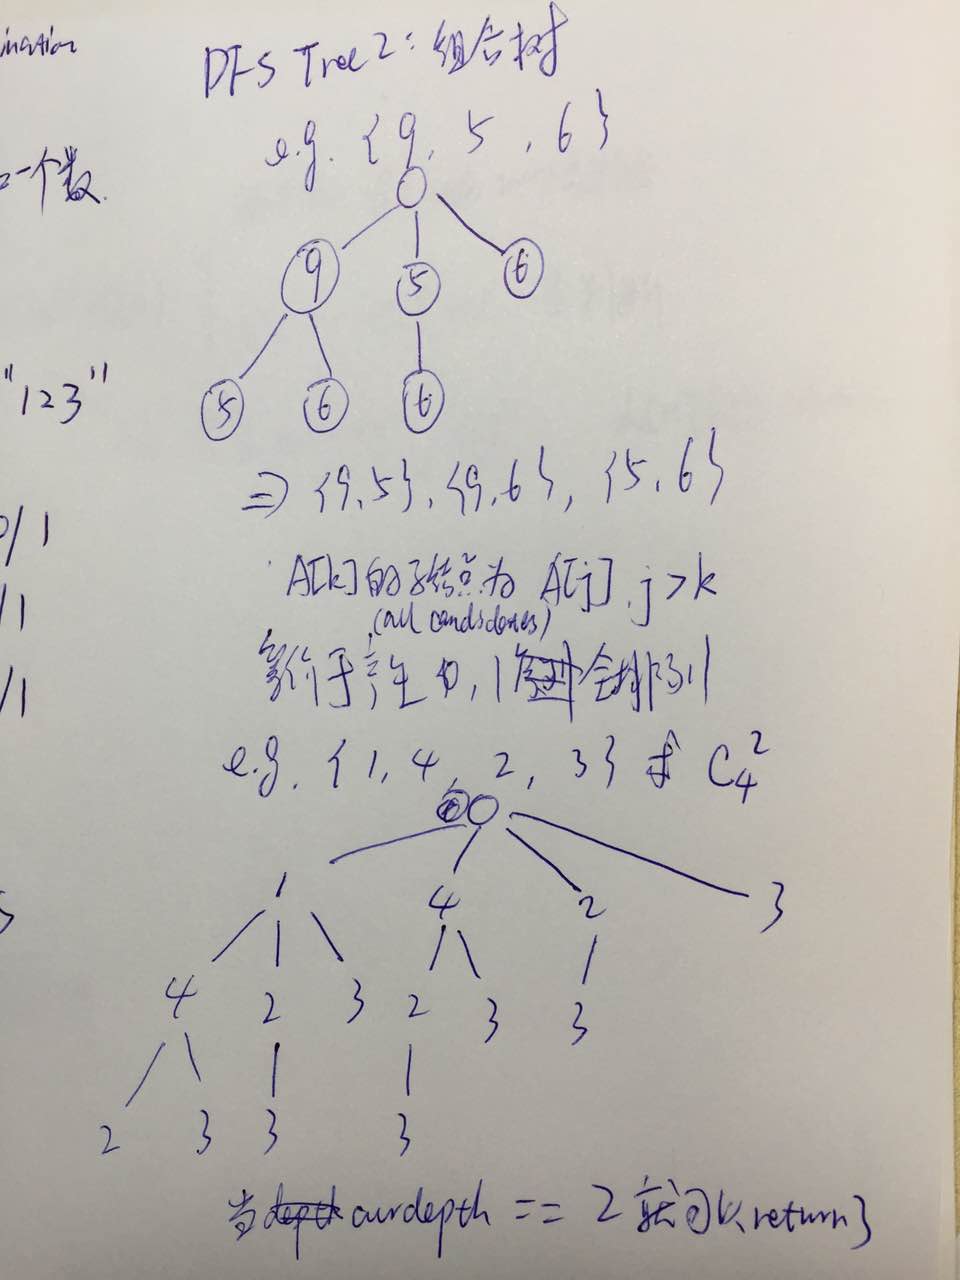 ination
一个数.
"123"
0/1
/1
/1
DFS Tree 2: 组合树
e.g. {9, 5, 6}
9 5 6
5 6 6
=> {9,5}, {9,6}, {5,6}
A[k]的子结点为 A[j], j>k
(all candidates)
等价于 0,1 全排列
e.g. {1, 4, 2, 3} 求 C₄²
1 4 2 3
4 2 3 2 3 3
2 3 3 3
当 curdepth == 2 就可以 return 了